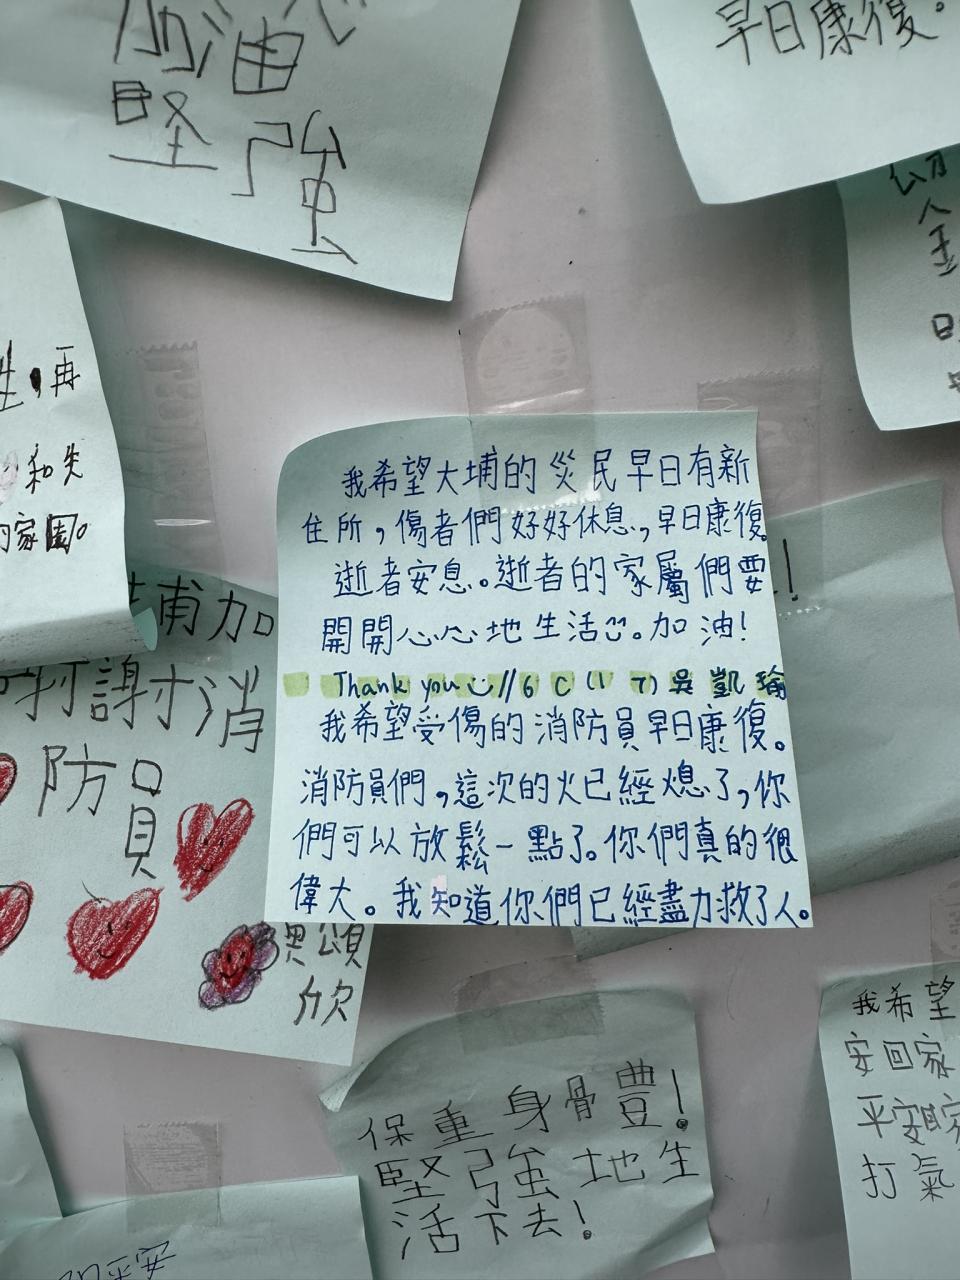 加油
堅強
早日康復。
金
再
和失
的家園。
我希望大埔的災民早日有新
住所,傷者們好好休息,早日康復。
逝者安息。逝者的家屬們要
開開心心地生活。加油!
Thank you // 6C(17)吳凱瑜
我希望受傷的消防員早日康復。
消防員們,這次的火已經熄了,你
們可以放鬆一點了。你們真的很
偉大。我知道你們已經盡力救了人。
!
埔加
謝消
防員
頌
欣
保重身體!
堅強地生
活下去!
我希望
安回家
平安
打氣
平安